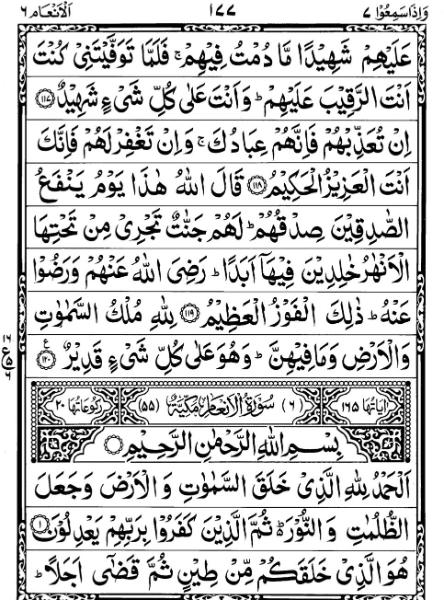 وَاِذَاسَمِعُوْا ٧ ١٧٧ اَلْاَنْعَام ٦
عَلَيْهِمْ شَهِيْدًا مَّا دُمْتُ فِيْهِمْ ۚ فَلَمَّا تَوَفَّيْتَنِيْ كُنْتَ
اَنْتَ الرَّقِيْبَ عَلَيْهِمْ ؕ وَاَنْتَ عَلٰى كُلِّ شَىْءٍ شَهِيْدٌ ﴿١١٧﴾
اِنْ تُعَذِّبْهُمْ فَاِنَّهُمْ عِبَادُكَ ۚ وَاِنْ تَغْفِرْ لَهُمْ فَاِنَّكَ
اَنْتَ الْعَزِيْزُ الْحَكِيْمُ ﴿١١٨﴾ قَالَ اللّٰهُ هٰذَا يَوْمُ يَنْفَعُ
الصّٰدِقِيْنَ صِدْقُهُمْ ؕ لَهُمْ جَنّٰتٌ تَجْرِيْ مِنْ تَحْتِهَا
الْاَنْهٰرُ خٰلِدِيْنَ فِيْهَاۤ اَبَدًا ؕ رَضِىَ اللّٰهُ عَنْهُمْ وَرَضُوْا
عَنْهُ ؕ ذٰلِكَ الْفَوْزُ الْعَظِيْمُ ﴿١١٩﴾ لِلّٰهِ مُلْكُ السَّمٰوٰتِ
وَالْاَرْضِ وَمَا فِيْهِنَّ ؕ وَهُوَ عَلٰى كُلِّ شَىْءٍ قَدِيْرٌ ﴿١٢٠﴾ ع
اٰيَاتُهَا ١٦٥ (٦) سُوْرَةُ الْاَنْعَامِ مَكِّيَّةٌ (٥٥) رُكُوْعَاتُهَا ٢٠
بِسْمِ اللّٰهِ الرَّحْمٰنِ الرَّحِيْمِ
اَلْحَمْدُ لِلّٰهِ الَّذِيْ خَلَقَ السَّمٰوٰتِ وَالْاَرْضَ وَجَعَلَ
الظُّلُمٰتِ وَالنُّوْرَ ؕ ثُمَّ الَّذِيْنَ كَفَرُوْا بِرَبِّهِمْ يَعْدِلُوْنَ ﴿١﴾
هُوَ الَّذِيْ خَلَقَكُمْ مِّنْ طِيْنٍ ثُمَّ قَضٰۤى اَجَلًا ؕ